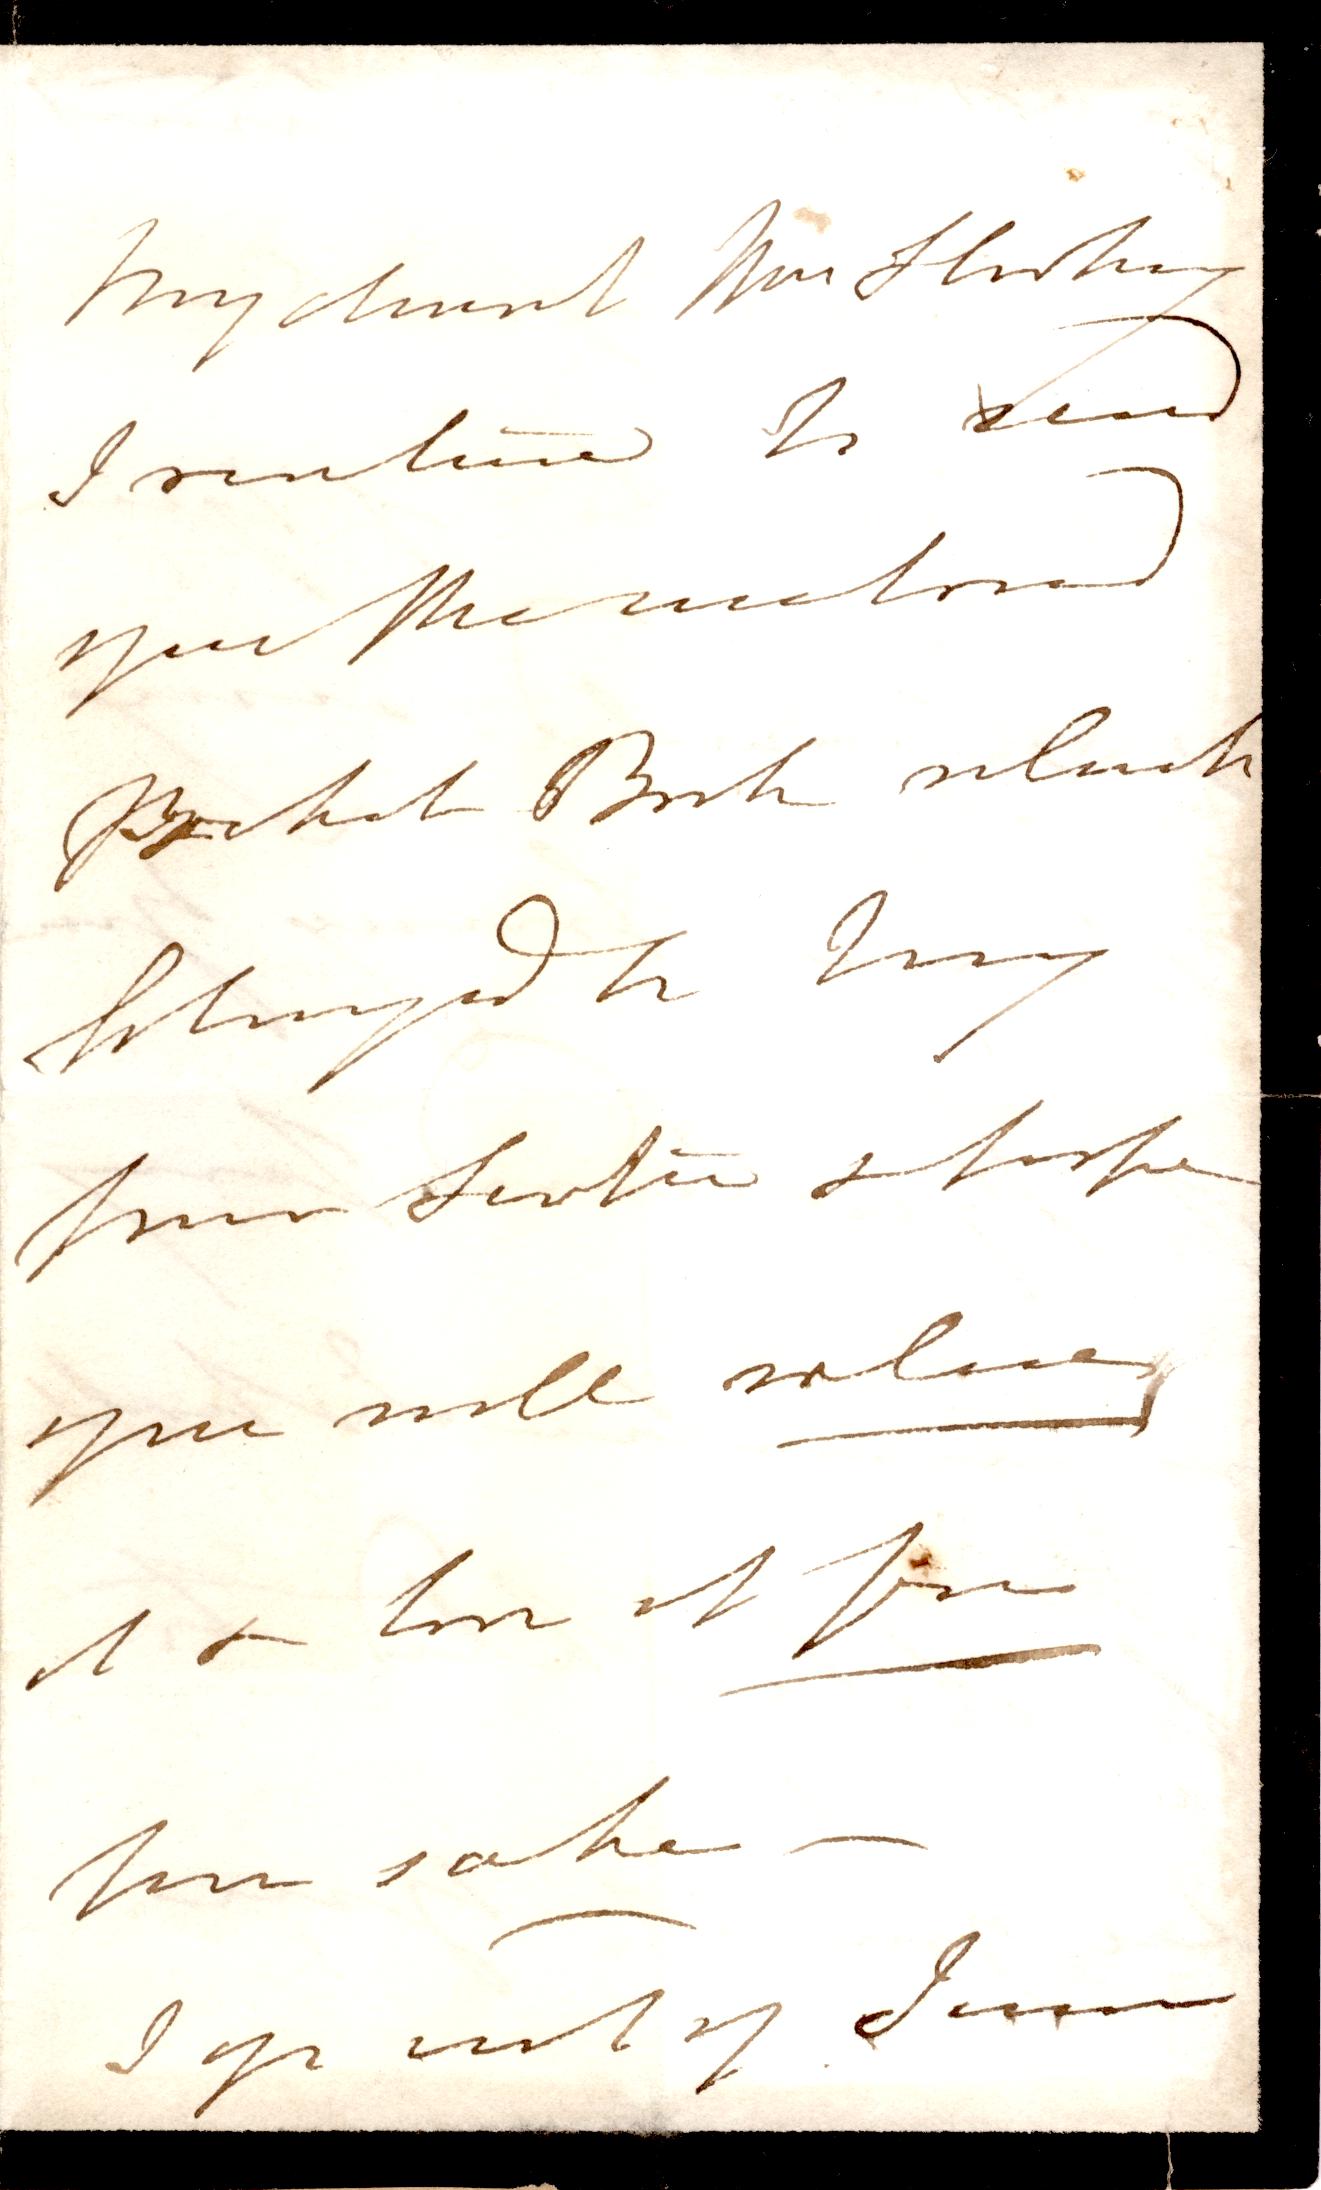 My dearest Mrs
I venture to send
you the enclosed
Pocket Book which
belonged to my
poor Sister & hope
you will value
it & love it for
her sake —
I go out of Town